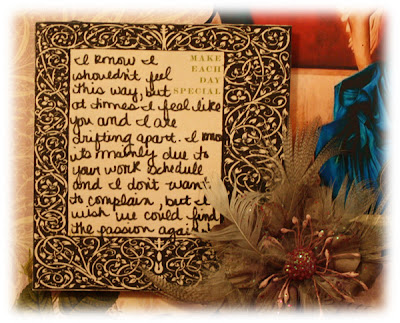 MAKE
EACH
DAY
SPECIAL
I know I
shouldn't feel
this way, but
at times I feel like
you and I are
drifting apart. I know
its mainly due to
your work schedule
and I don't want
to complain, but I
wish we could find
the passion again!